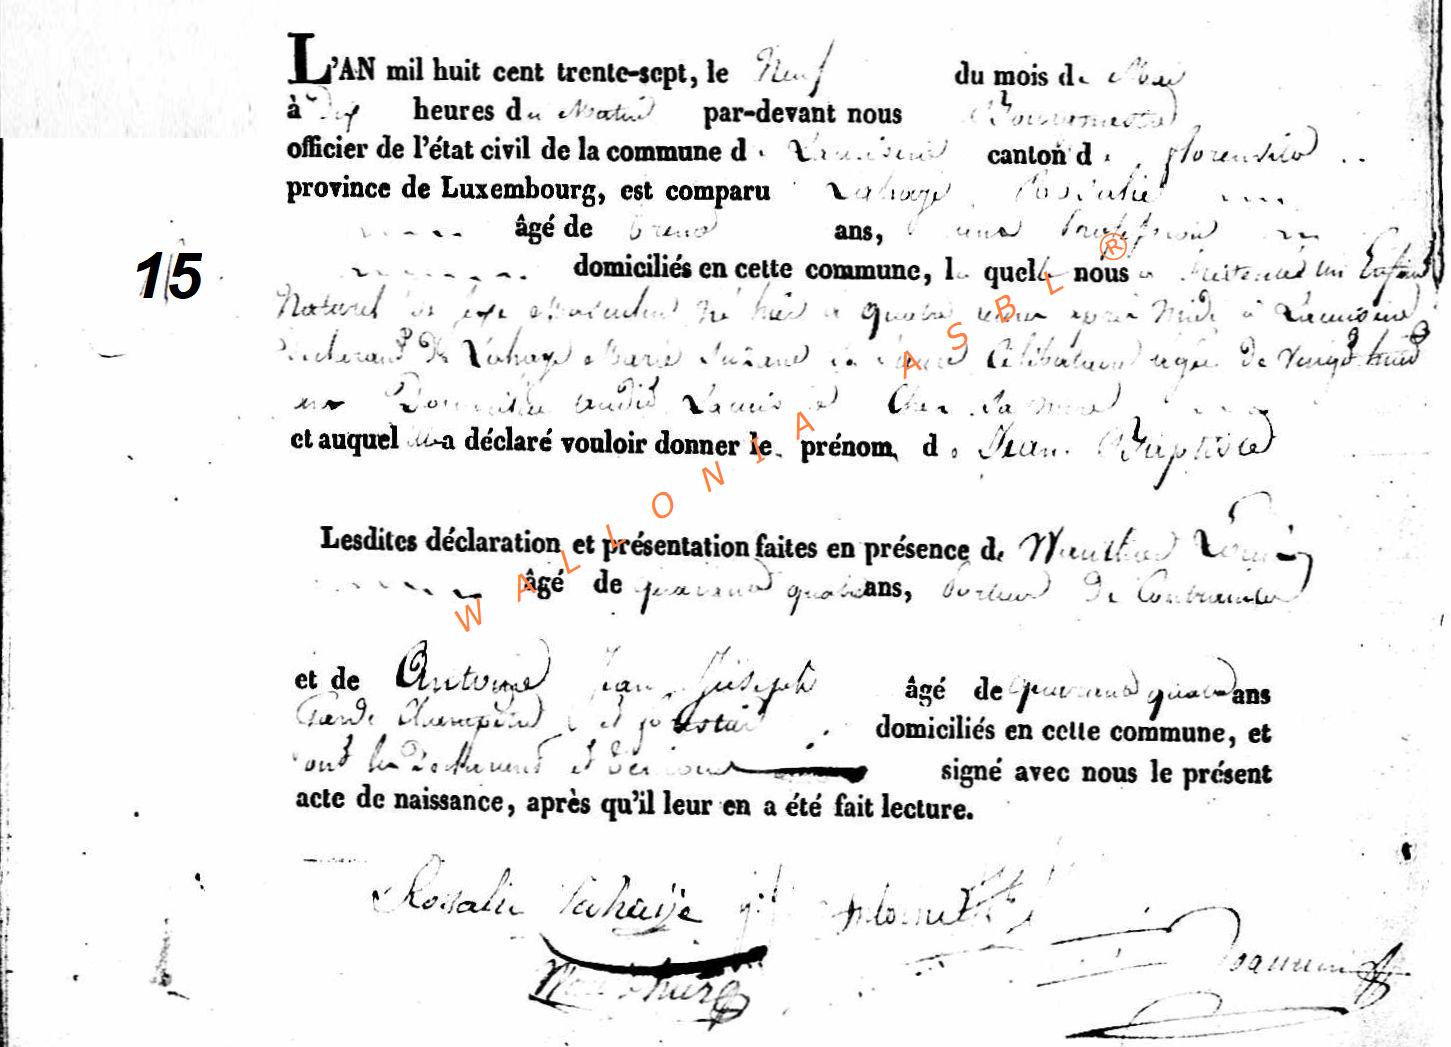 L'AN mil huit cent trente-sept, le Neuf du mois de Mai
à Dix heures du Matin par-devant nous Bourgmestre
officier de l'état civil de la commune d. canton d. florenville
province de Luxembourg, est comparu Lahaye Rosalie
âgé de trente ans, sans Profession
domiciliés en cette commune, l quelle nous a présenté un Enfant
Naturel de sexe Masculin né hier à quatre heures après Midi à
de Lahaye Marie Célibataire agée de vingt huit
ans Domiciliée audit
et auquel a déclaré vouloir donner le prénom de Jean Baptiste
Lesdites déclaration et présentation faites en présence de Wauthier Louis
âgé de quarante quatre ans, porteur de Contraintes
et de Antoine Jean Joseph âgé de quarante quatre ans
Garde Champêtre domiciliés en cette commune, et
ont les signé avec nous le présent
acte de naissance, après qu'il leur en a été fait lecture.
15
WALLONIA ASBL ®
Rosalie Lahaye Antoine
Wauthier